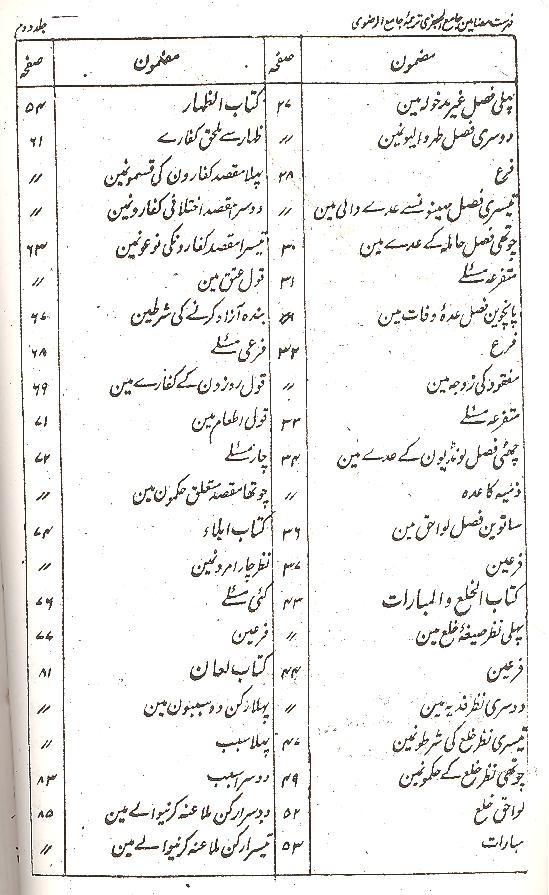 فہرست مضامین جامع الجعفری ترجمۂ جامع الرضوی جلد دوم
مضمون صفحہ مضمون صفحہ
پہلی فصل غیر مدخولہ مین ۲۷ کتاب الظہار ۵۴
دوسری فصل طہر والیونمین // ظہار سے ملحق کفارے ۶۱
فرع ۲۸ پہلا مقصد کفارون کی قسمونمین //
تیسری فصل مہینونسے عدے والی مین // دوسرا مقصد اختلافی کفارونمین //
چوتھی فصل حاملہ کے عدے مین ۳۰ تیسرا مقصد کفارونکی نوعونمین ۶۳
متفرعہ مسئلے ۳۱ قول عتق مین //
پانچوین فصل عدۂ وفات مین // بندہ آزاد کرنے کی شرطین ۶۶
فرع ۳۲ فرعی مسئلے ۶۸
مفقود کی زوجہ مین // قول روزون کے کفارے مین ۶۹
متفرعہ مسئلے ۳۳ قول اطعام مین ۷۱
چھٹی فصل لونڈیون کے عدے مین ۳۴ چار مسئلے ۷۲
ذمیہ کا عدہ // چوتھا مقصد متعلق حکمون مین //
ساتوین فصل لواحق مین ۳۶ کتاب ایلاء ۷۴
فرعین ۳۷ نظر چار امرونمین //
کتاب الخلع والمبارات ۴۳ کئی مسئلے ۷۶
پہلی نظر صیغۂ خلع مین // فرعین ۷۷
فرعین ۴۴ کتاب لعان ۸۱
دوسری نظر فدیہ مین // پہلا رکن دو سببون مین //
تیسری نظر خلع کی شرطونمین ۴۷ پہلا سبب //
چوتھی نظر خلع کے حکمونمین ۴۹ دوسرا سبب ۸۳
لواحق خلع ۵۲ دوسرا رکن ملاعنہ کرنیوالے مین ۸۵
مبارات ۵۳ تیسرا رکن ملاعنہ کرنیوالے مین //